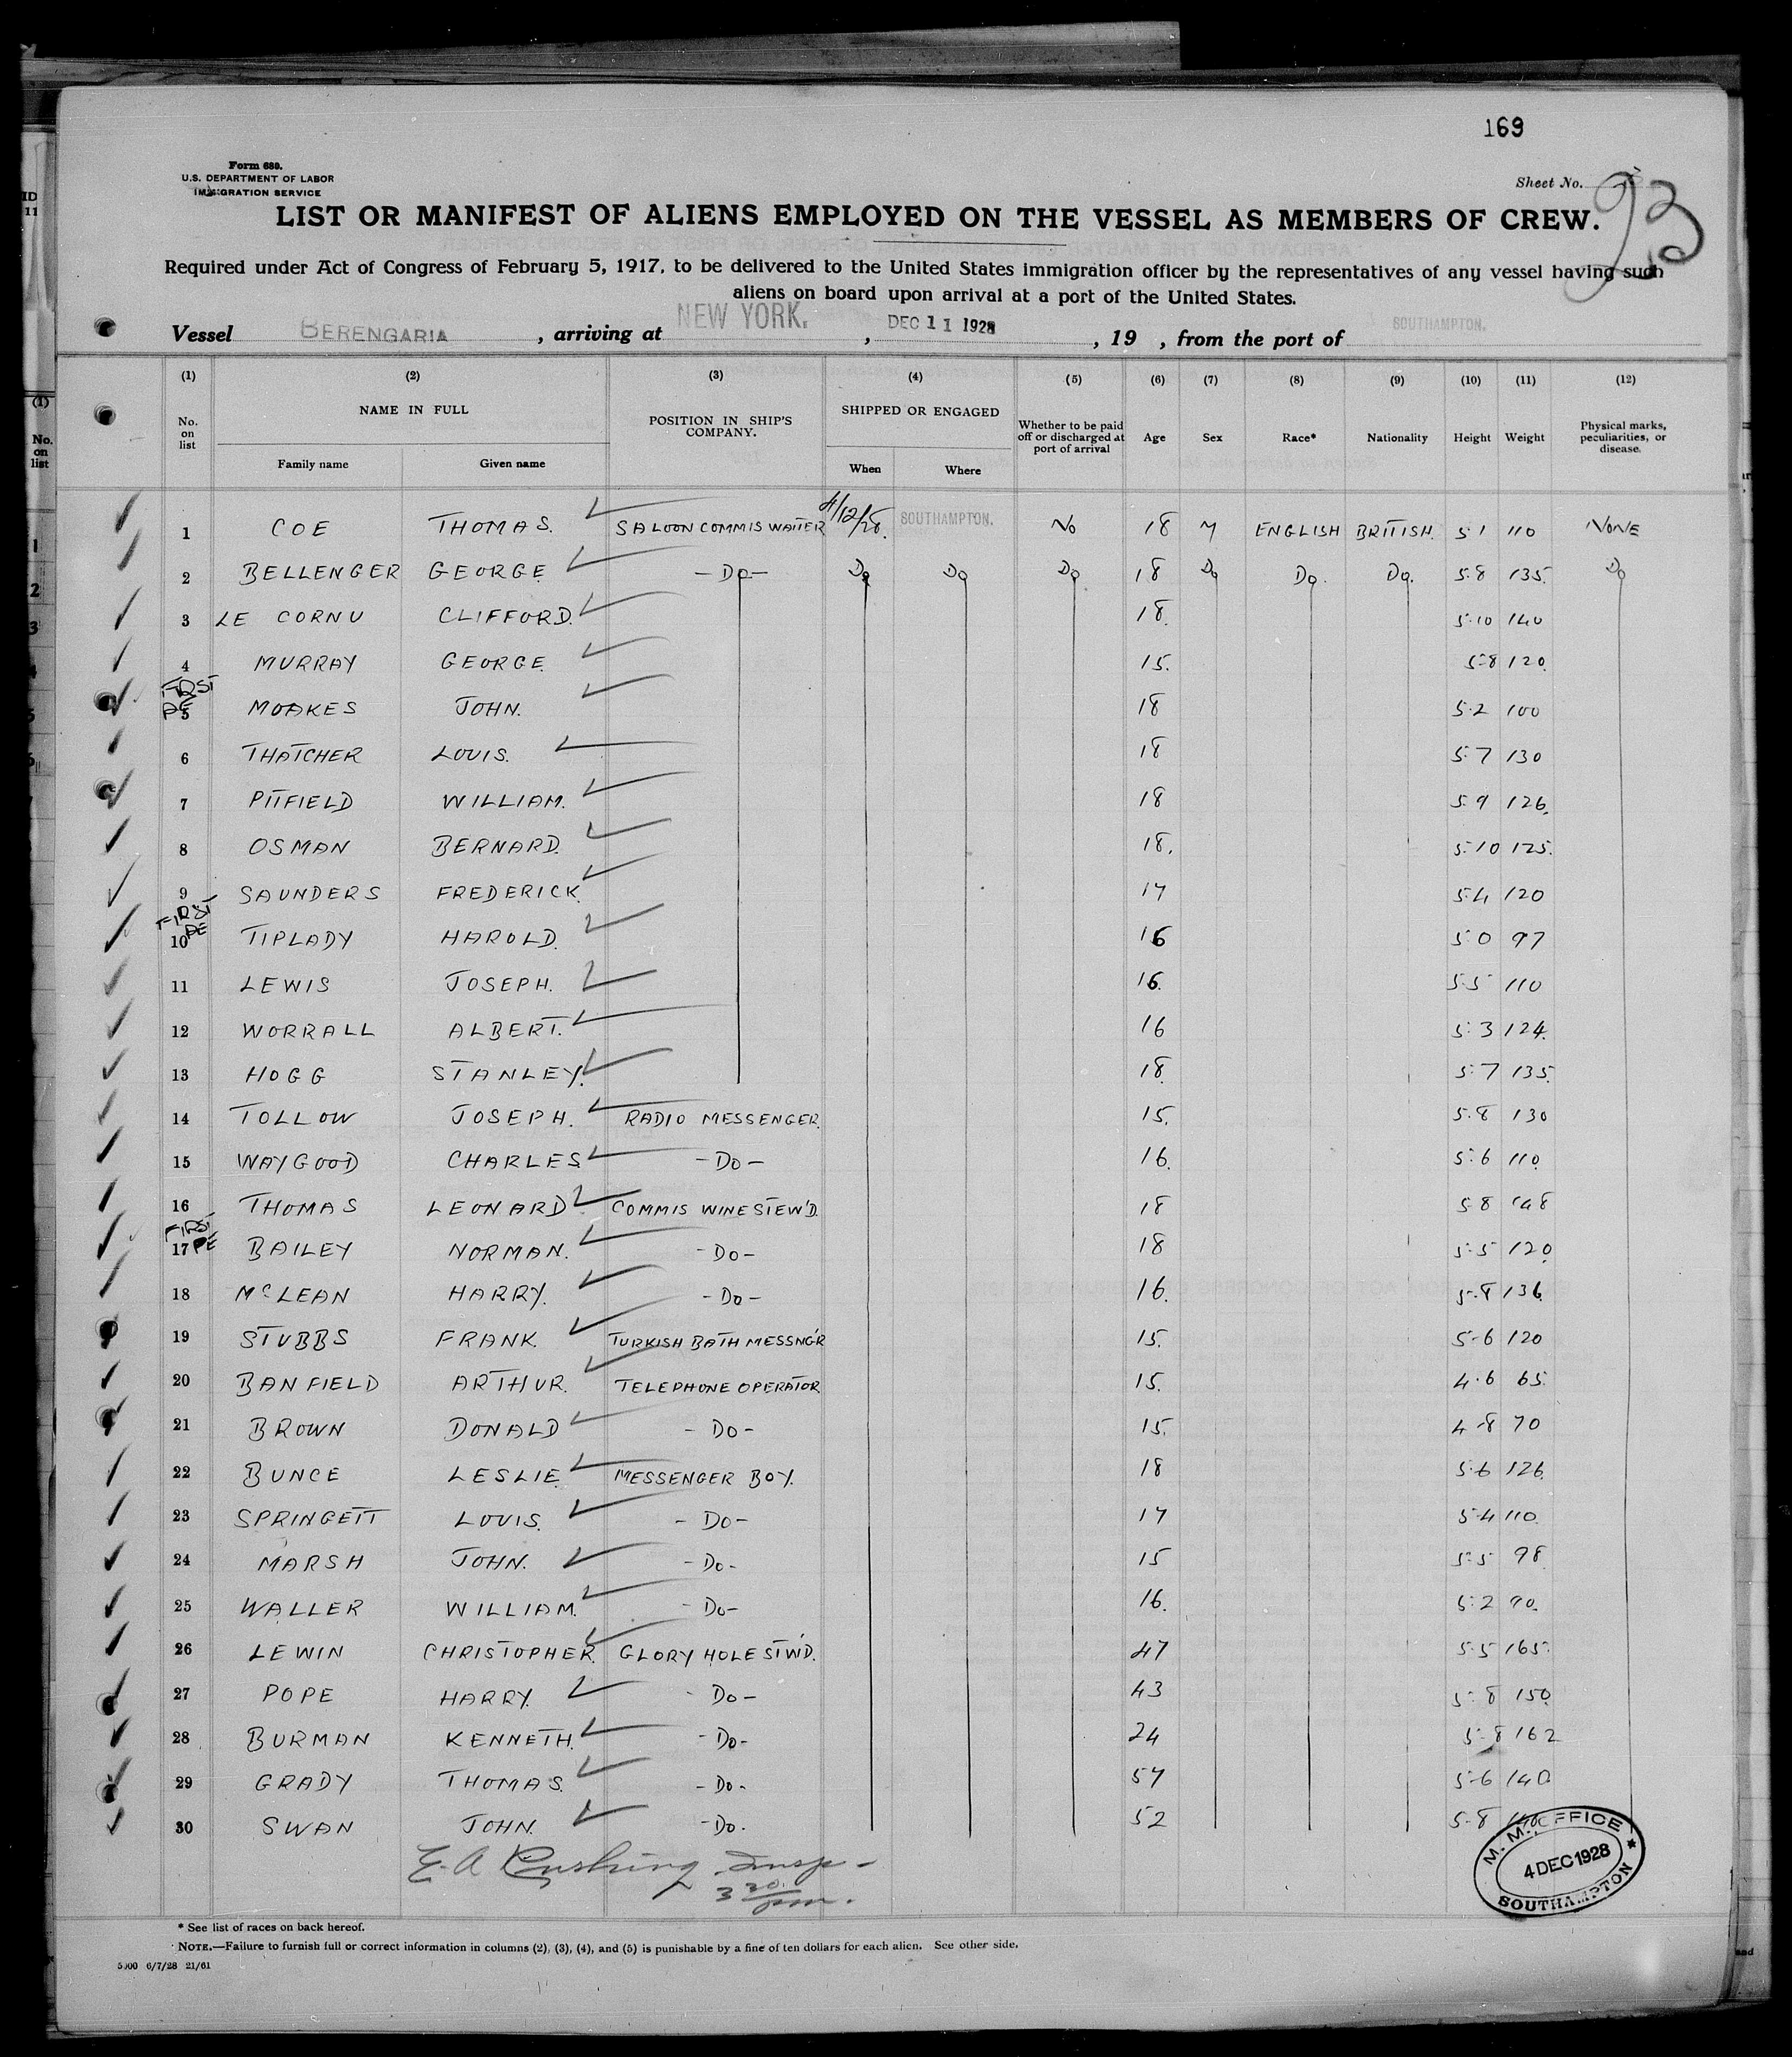 169
Form 680.
U.S. DEPARTMENT OF LABOR
IMMIGRATION SERVICE
Sheet No.
93
LIST OR MANIFEST OF ALIENS EMPLOYED ON THE VESSEL AS MEMBERS OF CREW.
Required under Act of Congress of February 5, 1917, to be delivered to the United States immigration officer by the representatives of any vessel having such
aliens on board upon arrival at a port of the United States.
Vessel BERENGARIA, arriving at NEW YORK., DEC 11 1928, 19 , from the port of SOUTHAMPTON.
(1) (2) (3) (4) (5) (6) (7) (8) (9) (10) (11) (12)
No. on list NAME IN FULL Family name Given name POSITION IN SHIP'S COMPANY. SHIPPED OR ENGAGED When Where Whether to be paid off or discharged at port of arrival Age Sex Race* Nationality Height Weight Physical marks, peculiarities, or disease.
1 COE THOMAS. SALOON COMMIS WAITER 4/12/28. SOUTHAMPTON. NO 18 M ENGLISH BRITISH. 5 1 110 NONE
2 BELLENGER GEORGE -DO- DO DO DO 18 DO DO. DO. 5.8 135. DO
3 LE CORNU CLIFFORD. 18. 5.10 140
4 MURRAY GEORGE. 15. 5-8 120.
FIRST
5 MOAKES JOHN. 18 5.2 100
6 THATCHER LOUIS. 18 5.7 130
7 PITFIELD WILLIAM. 18 5.9 126.
8 OSMAN BERNARD. 18. 5.10 125.
9 SAUNDERS FREDERICK. 17 5.4 120
FIRST
10 TIPLADY HAROLD. 16 5.0 97
11 LEWIS JOSEPH. 16. 5.5 110
12 WORRALL ALBERT. 16 5.3 124.
13 HOGG STANLEY. 18. 5.7 135.
14 TOLLOW JOSEPH. RADIO MESSENGER. 15. 5.8 130
15 WAYGOOD CHARLES -DO- 16. 5.6 110.
16 THOMAS LEONARD COMMIS WINE STEW'D. 18 5.8 148
FIRST
17 BAILEY NORMAN. -DO- 18 5.5 120.
18 McLEAN HARRY. -DO- 16. 5.8 136.
19 STUBBS FRANK. TURKISH BATH MESSNG'R 15. 5-6 120
20 BANFIELD ARTHUR. TELEPHONE OPERATOR. 15. 4.6 65.
21 BROWN DONALD -DO- 15. 4-8 70
22 BUNCE LESLIE. MESSENGER BOY. 18 5.6 126.
23 SPRINGETT LOUIS. -DO- 17 5.4 110.
24 MARSH JOHN. -DO- 15 5.5 98.
25 WALLER WILLIAM. -DO- 16. 5.2 90.
26 LEWIN CHRISTOPHER. GLORY HOLE STW'D. 47 5.5 165.
27 POPE HARRY. -DO- 43 5.8 150.
28 BURMAN KENNETH. -DO- 24 5-8 162
29 GRADY THOMAS. -DO- 57 5-6 140.
30 SWAN JOHN. -DO. 52 5-8
E. A. Cushing Insp-
3 20 pm.
M. M. OFFICE * SOUTHAMPTON
4 DEC 1928
* See list of races on back hereof.
NOTE.—Failure to furnish full or correct information in columns (2), (3), (4), and (5) is punishable by a fine of ten dollars for each alien. See other side.
5000 6/7/28 21/61